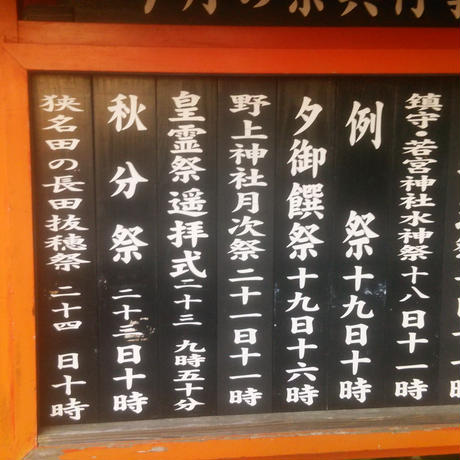 今月の祭典行事
鎮守・若宮神社水神祭十八日十一時
例祭十九日十時
夕御饌祭十九日十六時
野上神社月次祭二十一日十一時
皇霊祭遥拝式二十三 九時五十分
秋分祭二十三日十時
狭名田の長田抜穂祭 二十四 日十時